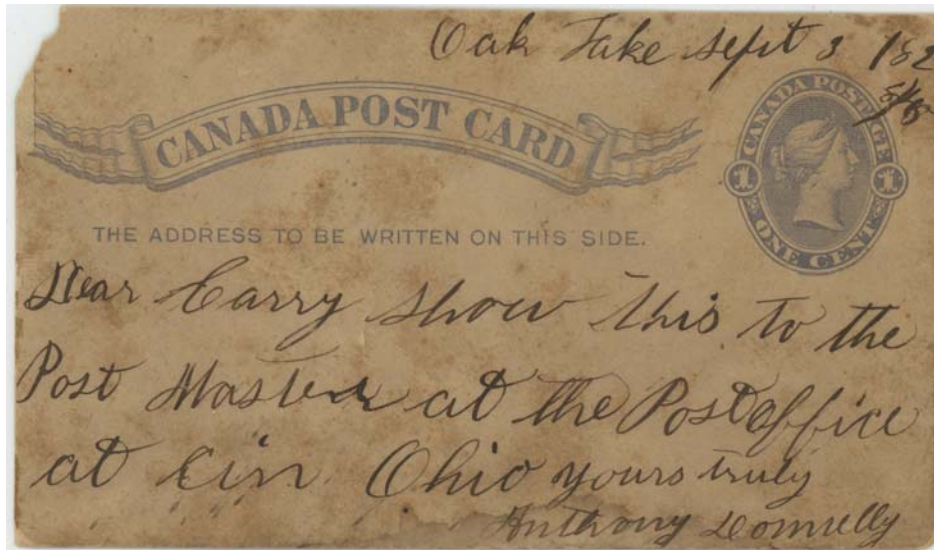 Oak Lake Sept 3 182
CANADA POST CARD
CANADA POSTAGE
1 1
ONE CENT
THE ADDRESS TO BE WRITTEN ON THIS SIDE.
Dear Carry show this to the
Post Master at the Post office
at cin Ohio yours truly
Anthony Donnelly